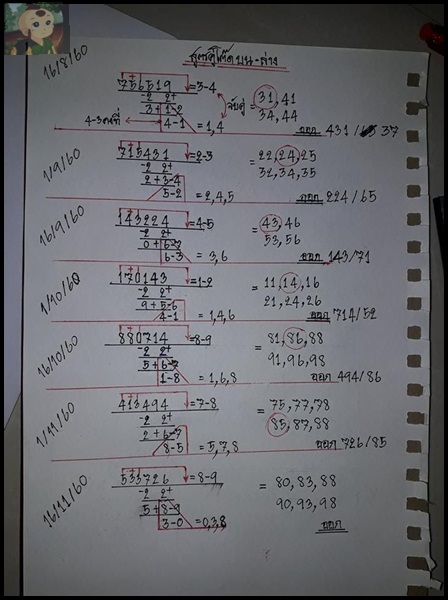 สูตรคู่เด็ด บน-ล่าง
16/8/60
756519 =3-4
-2 2+
3+1-2
4-3คงที่ 4-1 =1,4
จับคู่ = 31,41
34,44
ออก 431/37
1/9/60
715431 =2-3
-2 2+
2+3-4
5-2 =2,4,5
=22,24,25
32,34,35
ออก 224/65
16/9/60
143224 =4-5
-2 2+
0+6-7
6-3 =3,6
=43,46
53,56
ออก 143/71
1/10/60
170143 =1-2
-2 2+
9+5-6
4-1 =1,4,6
=11,14,16
21,24,26
ออก 714/52
16/10/60
880714 =8-9
-2 2+
5+6-7
1-8 =1,6,8
= 81,86,88
91,96,98
ออก 494/86
1/11/60
413494 =7-8
-2 2+
2+6-7
8-5 =5,7,8
= 75,77,78
85,87,88
ออก 726/85
16/11/60
533726 =8-9
-2 2+
5+8-9
3-0 =0,3,8
= 80,83,88
90,93,98
ออก